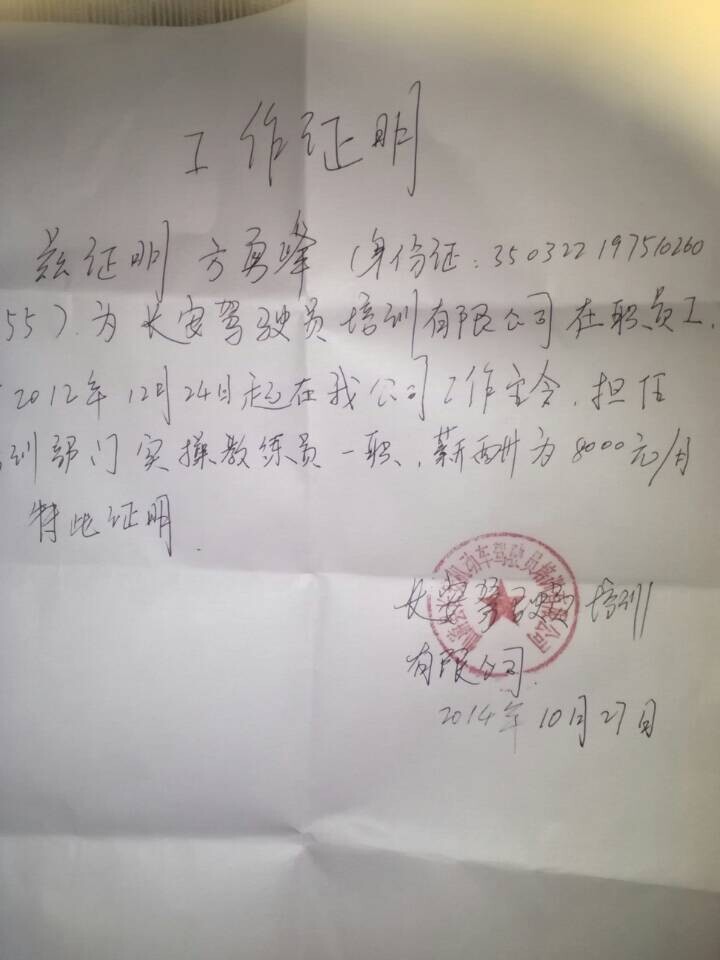 工作证明
兹证明 方勇峰 (身份证:350322197510260
55).为长安驾驶员培训有限公司在职员工,
2012年12月24日起在我公司工作至今,担任
训部门实操教练员一职,薪酬为8000元/月
特此证明.
机动车驾驶员培训有限公司
长安驾驶员培训
有限公司.
2014年10月27日